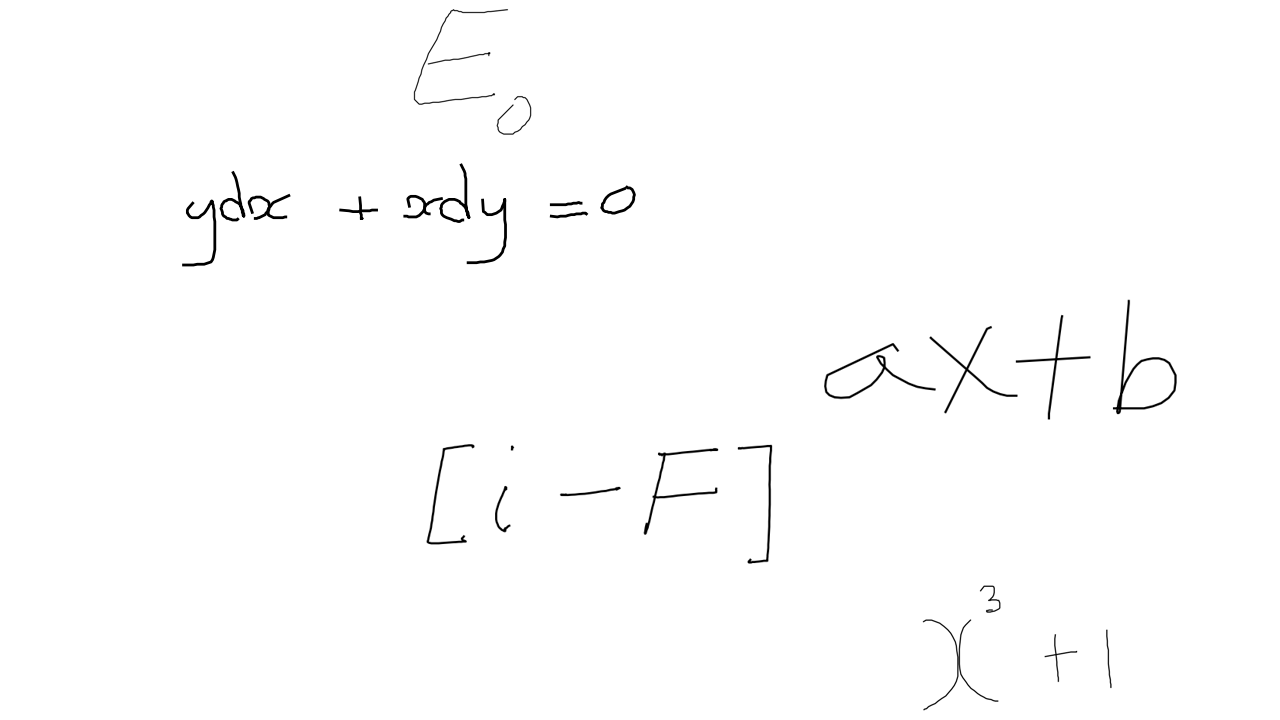 E₀
ydx + xdy = 0
ax+b
[i - F]
x³ + 1